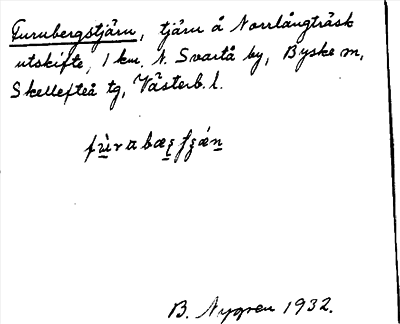 Furubergstjärn, tjärn å Norrlångträsk
utskifte, 1 km. N. Svartå by, Byske sn,
Skellefteå tg, Västerb. l.
B. Nygren 1932.